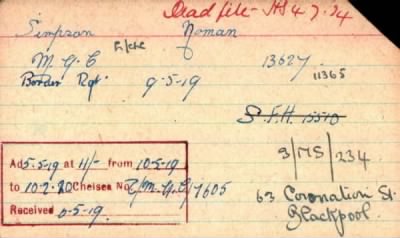 Dead file - 4.7.24
Simpson Noman
M G C 13627
11365
Border Rgt 9-5-19
S.F.H. 15510
3/MS/234
Ad 5-5-19 at 11/- from 10-5-19
to 10-2-20 Chelsea No. 2/M.G.C/7605
Received 0-5-19.
63 Coronation St.
Blackpool.